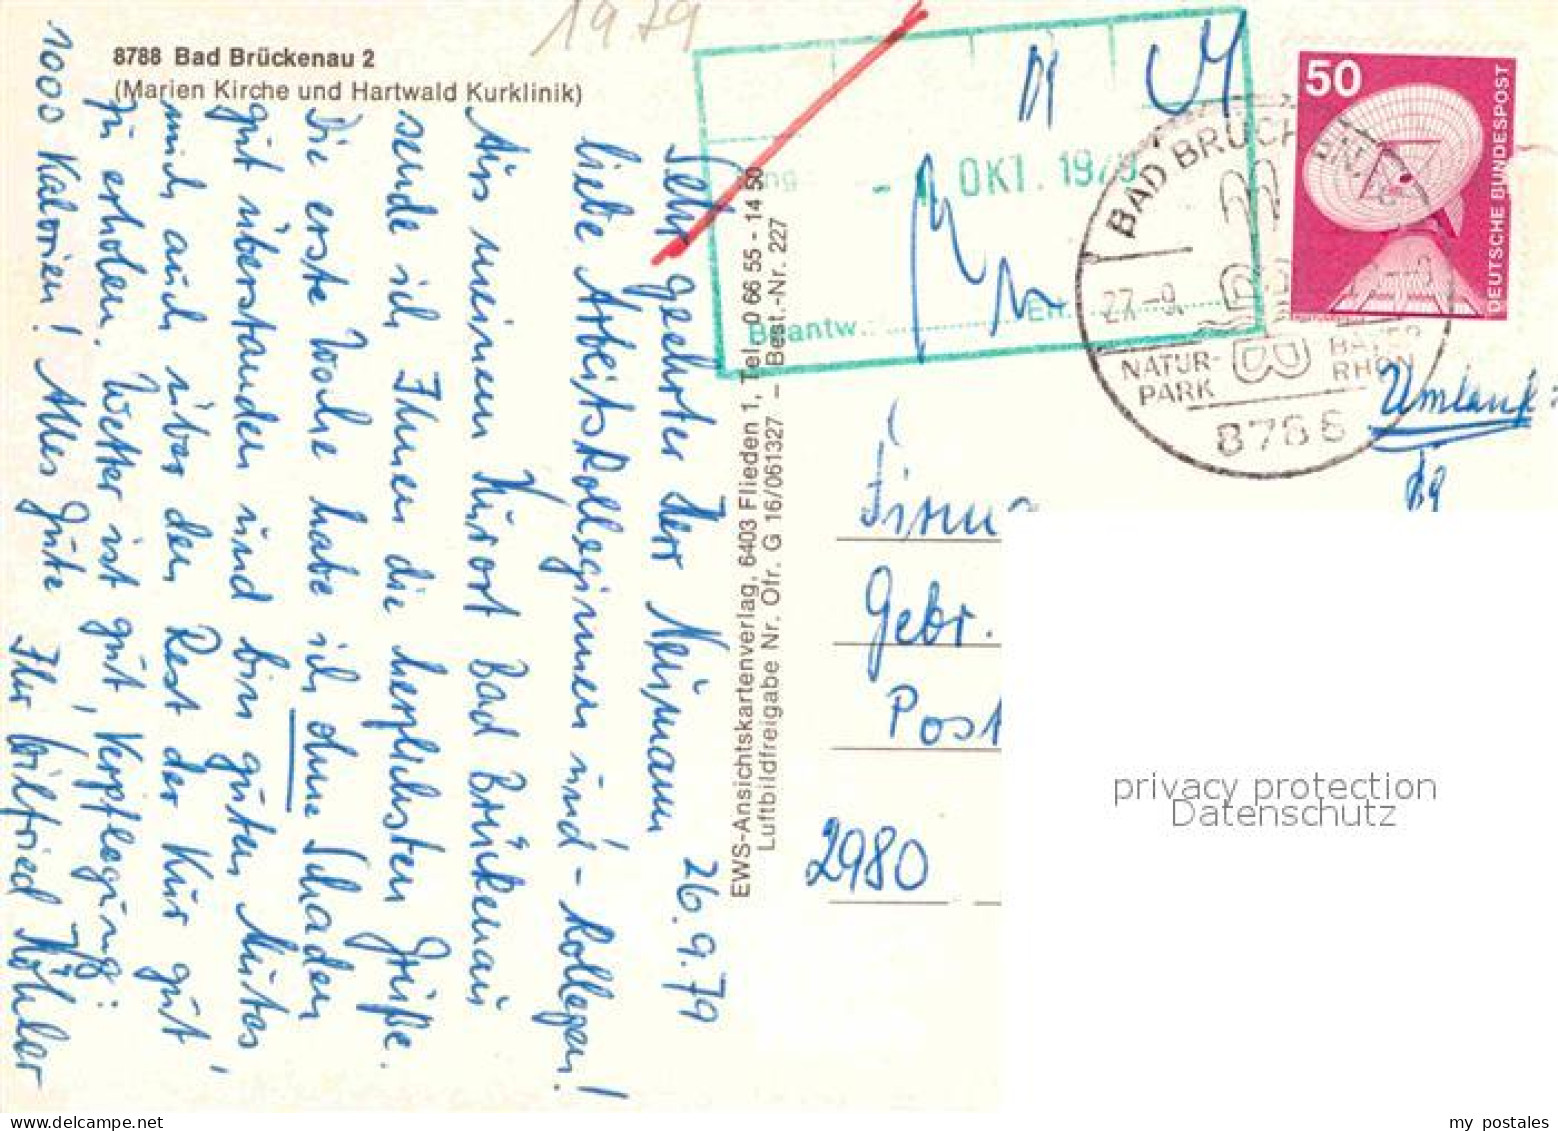 1979
8788 Bad Brückenau 2
(Marien Kirche und Hartwald Kurklinik)
26.9.79
Sehr geehrter Herr Neumann
liebe Arbeitskolleginnen und - Kollegen!
Aus meinem Kurort Bad Brückenau
sende ich Ihnen die herzlichsten Grüße.
Die erste Woche habe ich ohne Schaden
gut überstanden und bin guten Mutes,
mich auch über den Rest der Kur gut
zu erholen. Wetter ist gut, Verpflegung:
1000 Kalorien! Alles Gute Ihr Wilfried Köhler
EWS-Ansichtskartenverlag, 6403 Flieden 1, Tel. 0 66 55 - 14 50
Luftbildfreigabe Nr. Ofr. G 16/061327 – Best.-Nr. 227
OKT. 197
Beantw.:
50
DEUTSCHE BUNDESPOST
BAD BRÜCKENAU
27.-9.
NATUR-
PARK
BAYER
RHÖN
8788
Umlauf:
Firma
Gebr.
Post
2980
privacy protection
Datenschutz
www.delcampe.net
my_postales